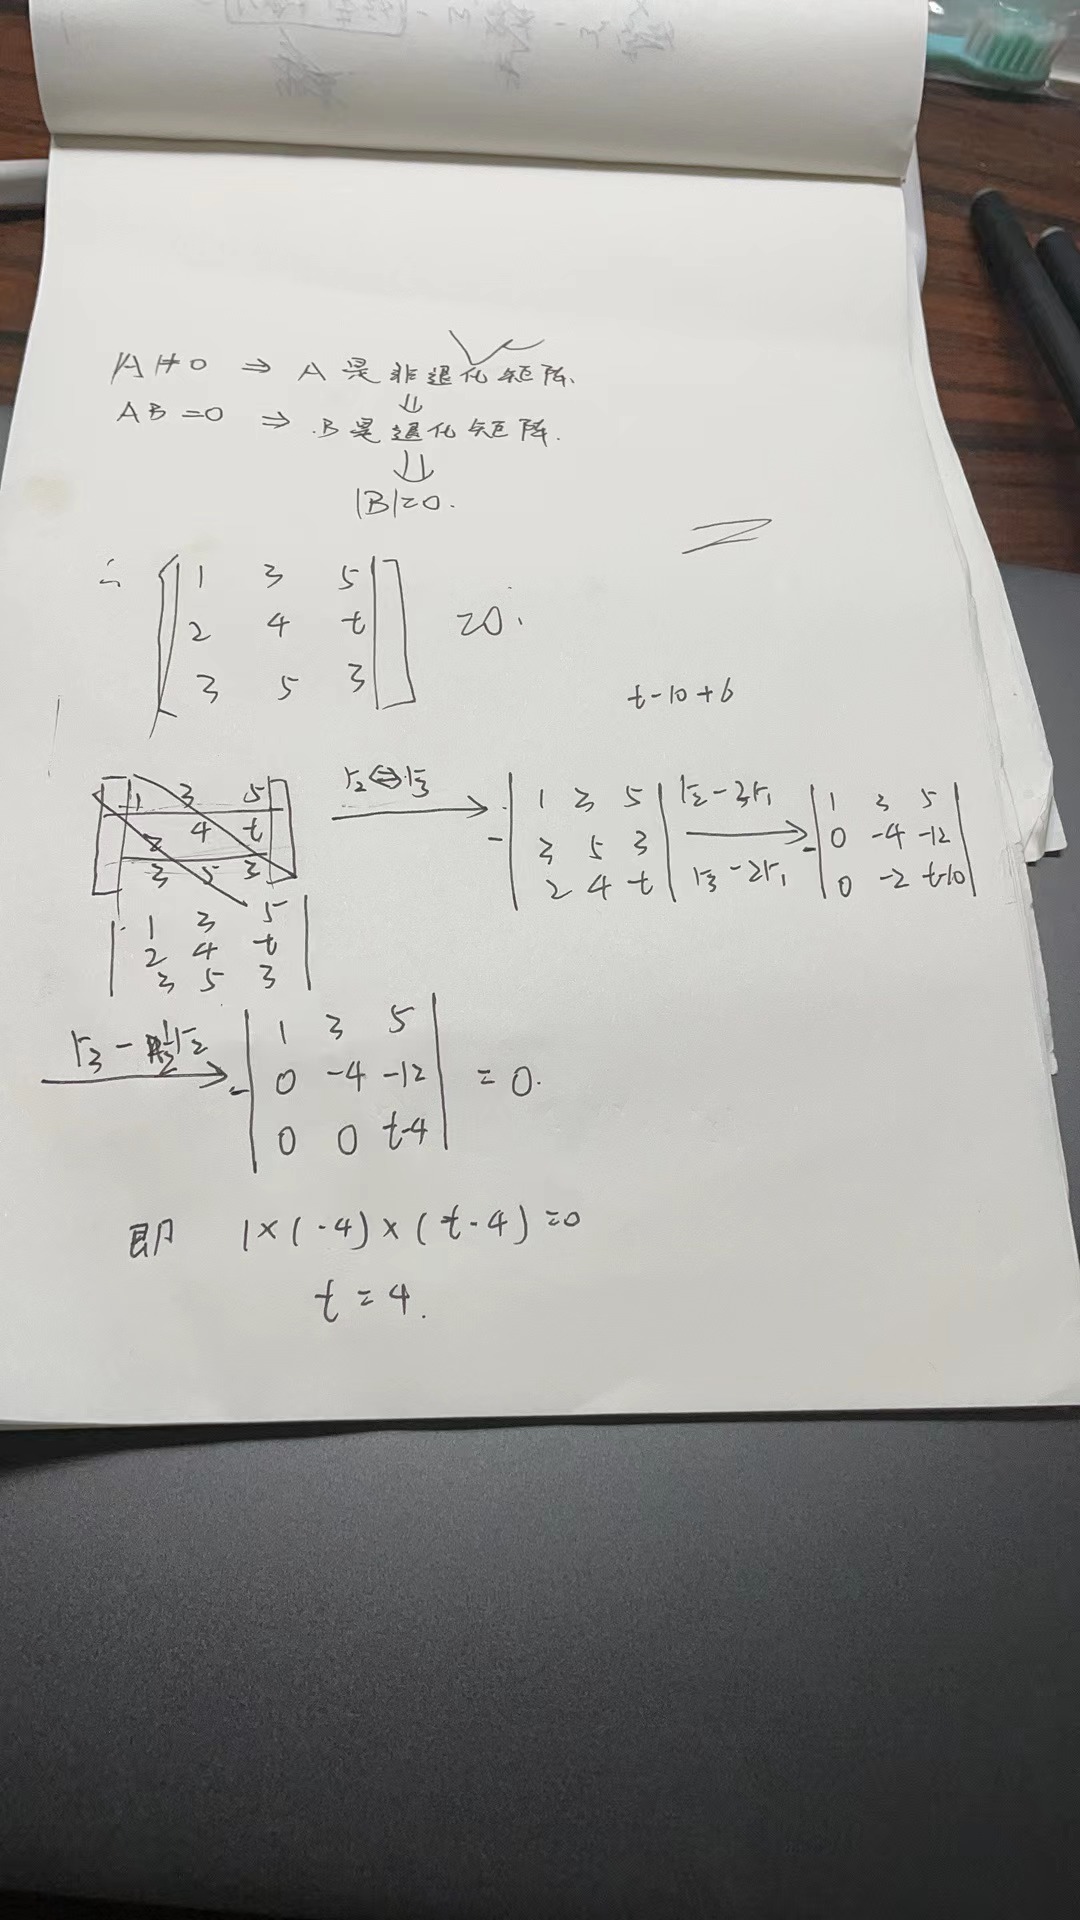 |A|≠0 ⇒ A 是非退化矩阵.
⇓
AB=0 ⇒ B是退化矩阵.
⇓
|B|=0.
∴ 1 3 5
2 4 t =0.
3 5 3
t-10+6
1 3 5
2 4 t
3 5 3
r₂⇔r₃
- | 1 3 5 |
| 3 5 3 |
| 2 4 t |
r₂-3r₁
r₃-2r₁
- | 1 3 5 |
| 0 -4 -12 |
| 0 -2 t-10 |
| 1 3 5 |
| 2 4 t |
| 3 5 3 |
r₃-½r₂
- | 1 3 5 |
| 0 -4 -12 | = 0.
| 0 0 t-4 |
即 1×(-4)×(t-4)=0
t=4.